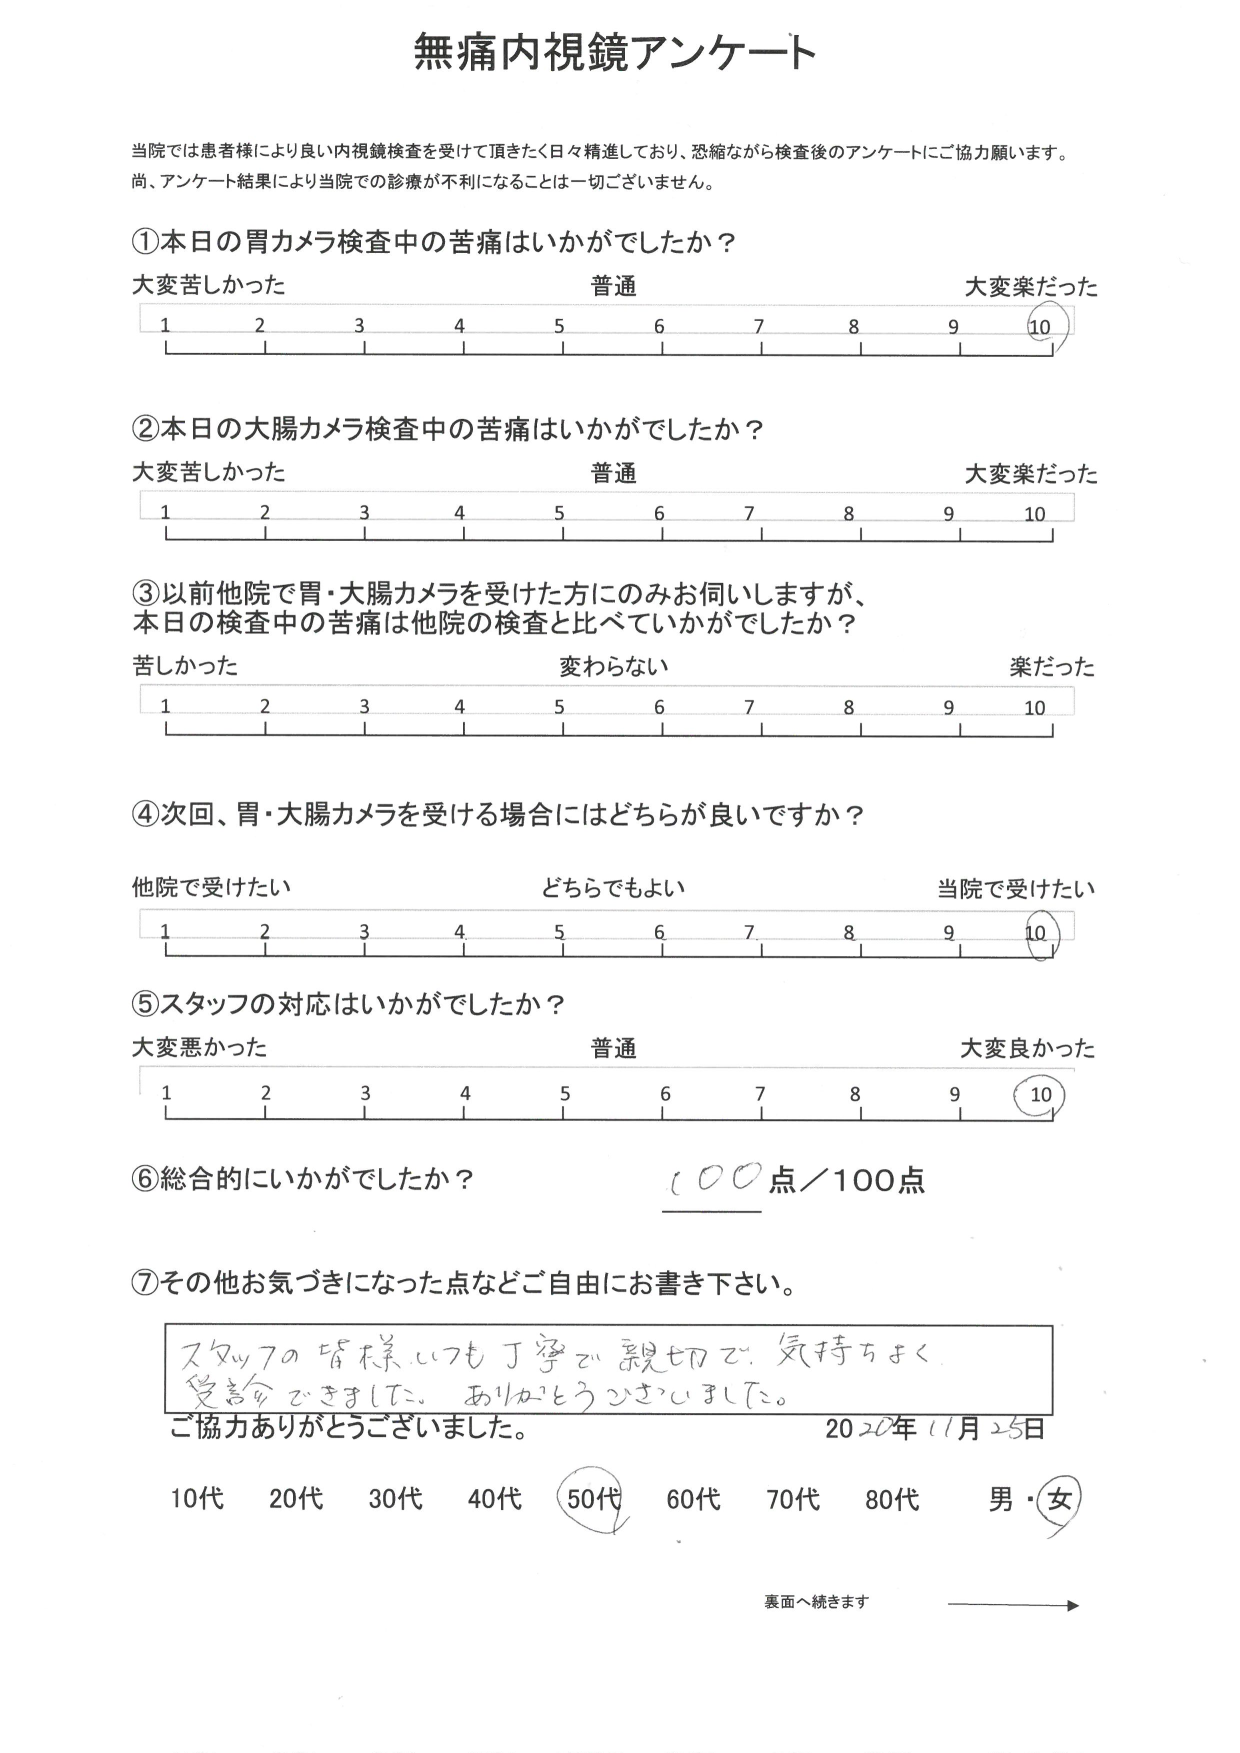 無痛内視鏡アンケート
当院では患者様により良い内視鏡検査を受けて頂きたく日々精進しており、恐縮ながら検査後のアンケートにご協力願います。
尚、アンケート結果により当院での診療が不利になることは一切ございません。
①本日の胃カメラ検査中の苦痛はいかがでしたか？
大変苦しかった 普通 大変楽だった
1 2 3 4 5 6 7 8 9 10
②本日の大腸カメラ検査中の苦痛はいかがでしたか？
大変苦しかった 普通 大変楽だった
1 2 3 4 5 6 7 8 9 10
③以前他院で胃・大腸カメラを受けた方にのみお伺いしますが、
本日の検査中の苦痛は他院の検査と比べていかがでしたか？
苦しかった 変わらない 楽だった
1 2 3 4 5 6 7 8 9 10
④次回、胃・大腸カメラを受ける場合にはどちらが良いですか？
他院で受けたい どちらでもよい 当院で受けたい
1 2 3 4 5 6 7 8 9 10
⑤スタッフの対応はいかがでしたか？
大変悪かった 普通 大変良かった
1 2 3 4 5 6 7 8 9 10
⑥総合的にいかがでしたか？ 100点／100点
⑦その他お気づきになった点などご自由にお書き下さい。
スタッフの皆様いつも丁寧で親切で、気持ちよく
受診できました。ありがとうございました。
ご協力ありがとうございました。 2020年11月25日
10代 20代 30代 40代 50代 60代 70代 80代 男・女
裏面へ続きます